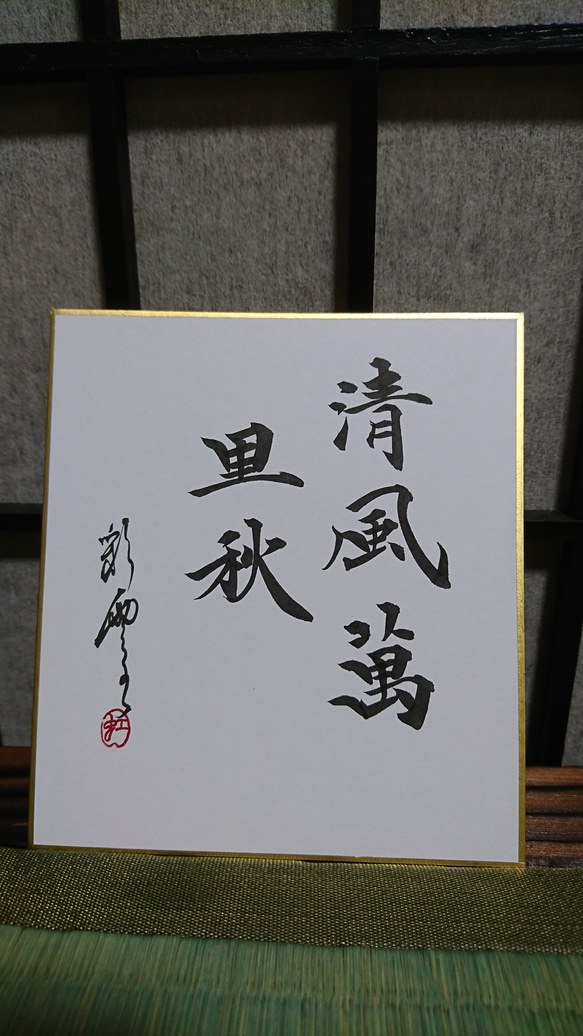 清風萬
里秋
彩雲